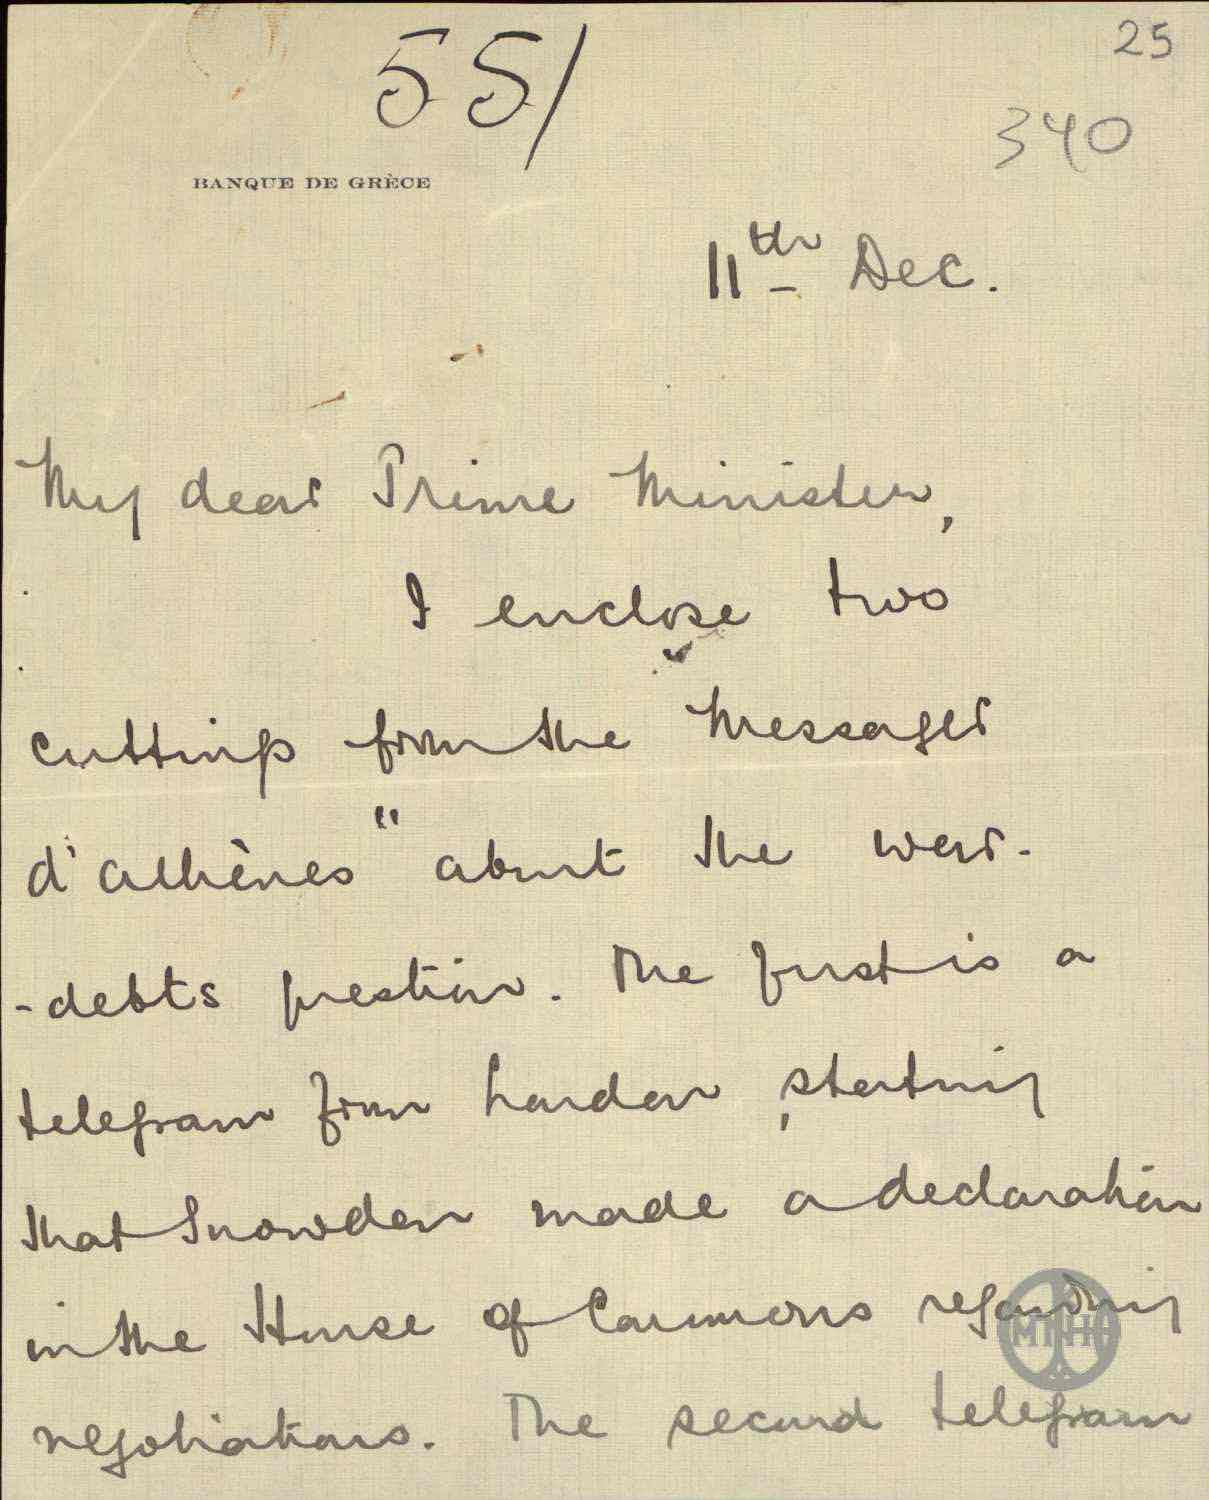 25
55/
340
BANQUE DE GRÈCE
11th Dec.
My dear Prime Minister,
I enclose two
cuttings from the "Messager
d'Athènes" about the war-
-debts question. The first is a
telegram from London, stating
that Snowden made a declaration
in the House of Commons regarding
negotiations. The second telegram